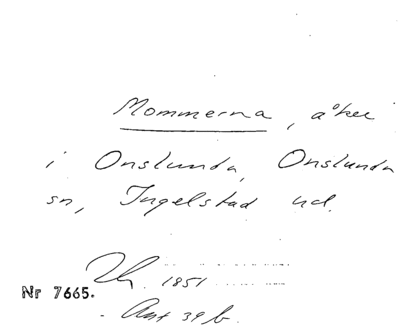 Mommerna, åker
i Onslunda, Onslunda
sn, Ingelstad hd.
1851
Nr 7665.
Akt 39 b.